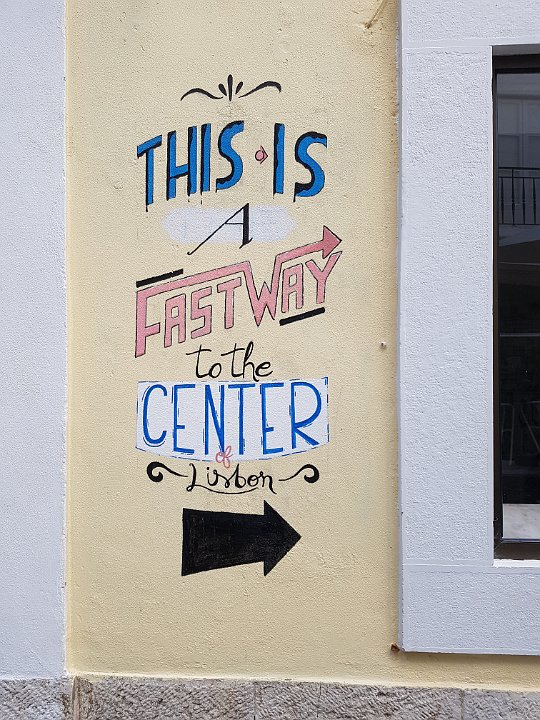 THIS IS
A
FASTWAY
to the
CENTER
of
Lisbon